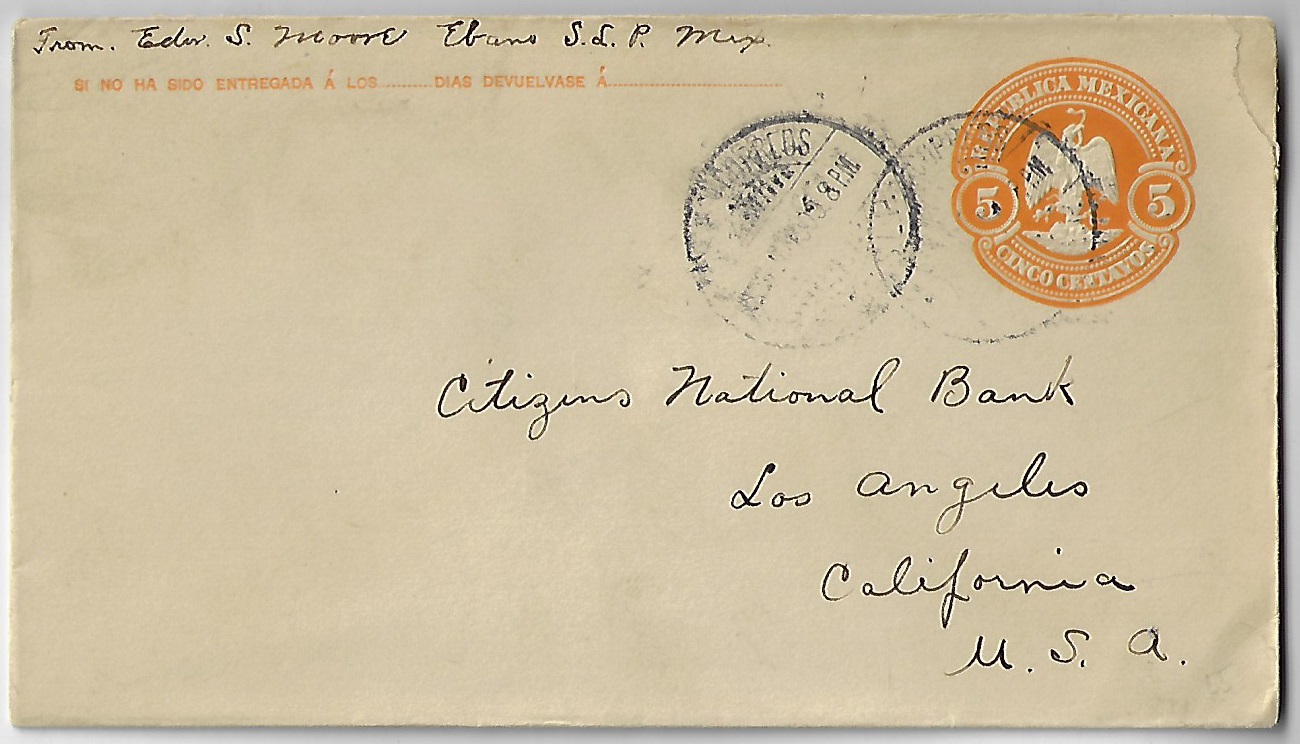 From. Edw. S. Moore Ebano S.L.P. Mex.
SI NO HA SIDO ENTREGADA Á LOS..........DIAS DEVUELVASE Á..............................
REPUBLICA MEXICANA
5 5
CINCO CENTAVOS
CORREOS
8 PM.
PM
Citizens National Bank
Los Angeles
California
U. S. A.